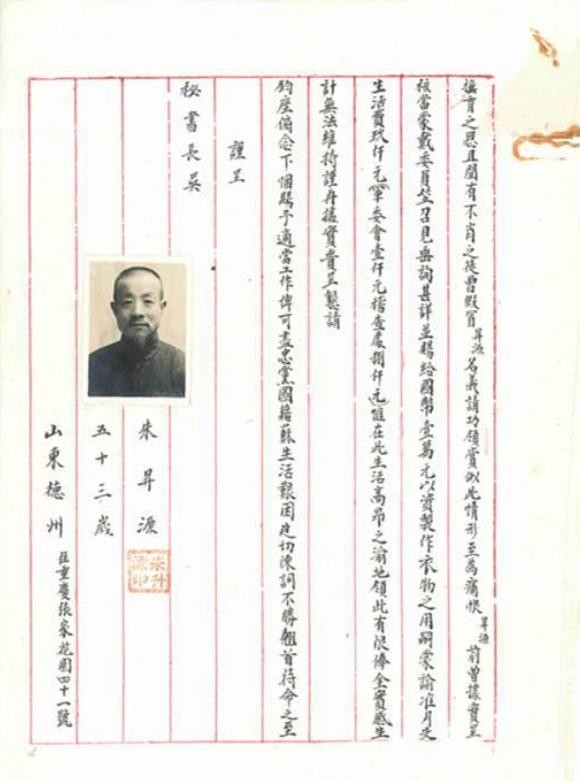 撫育之恩且聞有不肖之徒曾假冒昇源名義請功領賞似此情形至為痛恨昇源前曾據實呈
核當蒙戴委員笠召見垂詢甚詳並賜給國幣壹萬元以資製作衣物之用嗣蒙諭准月支
生活費玖仟元軍委會壹仟元稽查處捌仟元惟在此生活高昂之渝地領此有限俸金實感生
計無法維持謹再據實賫呈懇請
鈞座俯念下悃賜予適當工作俾可盡忠黨國藉蘇生活艱困迫切陳詞不勝翹首待命之至
謹呈
秘書長吳
朱昇源
朱升源印
五十三歲
山東德州 住重慶張家花園四十一號